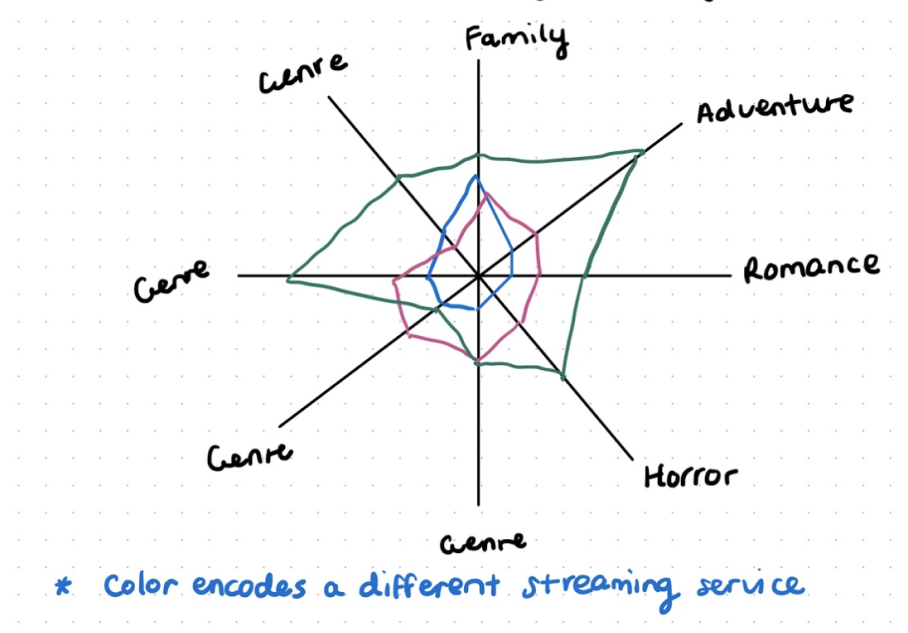 Family
Genre
Adventure
Genre
Romance
Genre
Horror
Genre
* Color encodes a different streaming service